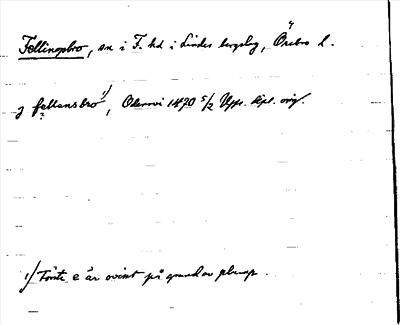 Fellingsbro, sn i F. hd i Lindes bergslag, Örebro l.
j fellansbro 1), Olenovi 1470 5/2 Upps. dipl. orig.
1) Första e är ovisst på grund av plump.